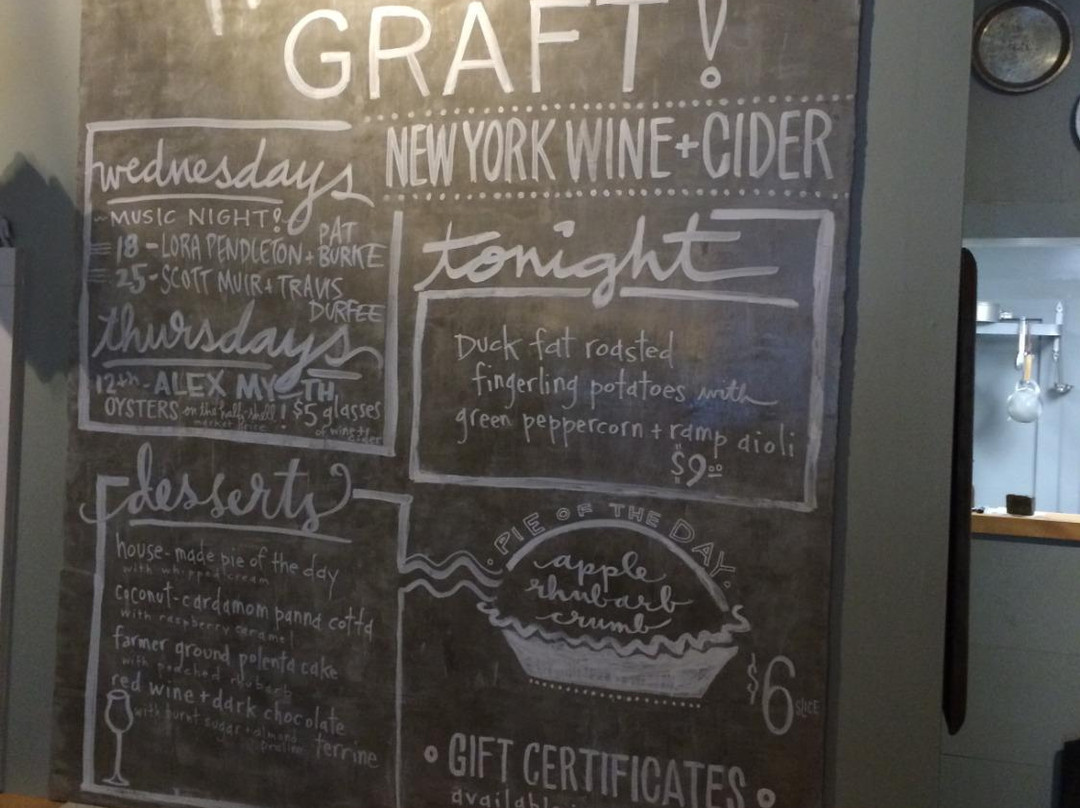 GRAFT!
NEW YORK WINE + CIDER
wednesdays
MUSIC NIGHT!
18 - LORA PENDLETON + PAT BURKE
25 - SCOTT MUIR + TRAVIS
DURFEE
thursdays
12th - ALEX MYTH
OYSTERS on the half-shell ! $5 glasses
market price of wine + cider
tonight
Duck fat roasted
fingerling potatoes with
green peppercorn + ramp aioli
$9.00
desserts
house-made pie of the day
with whipped cream
coconut-cardamom panna cotta
with raspberry caramel
farmer ground polenta cake
with poached rhubarb
red wine + dark chocolate
with burnt sugar + almond
praline terrine
PIE OF THE DAY
apple
rhubarb
crumb
$6 SLICE
GIFT CERTIFICATES